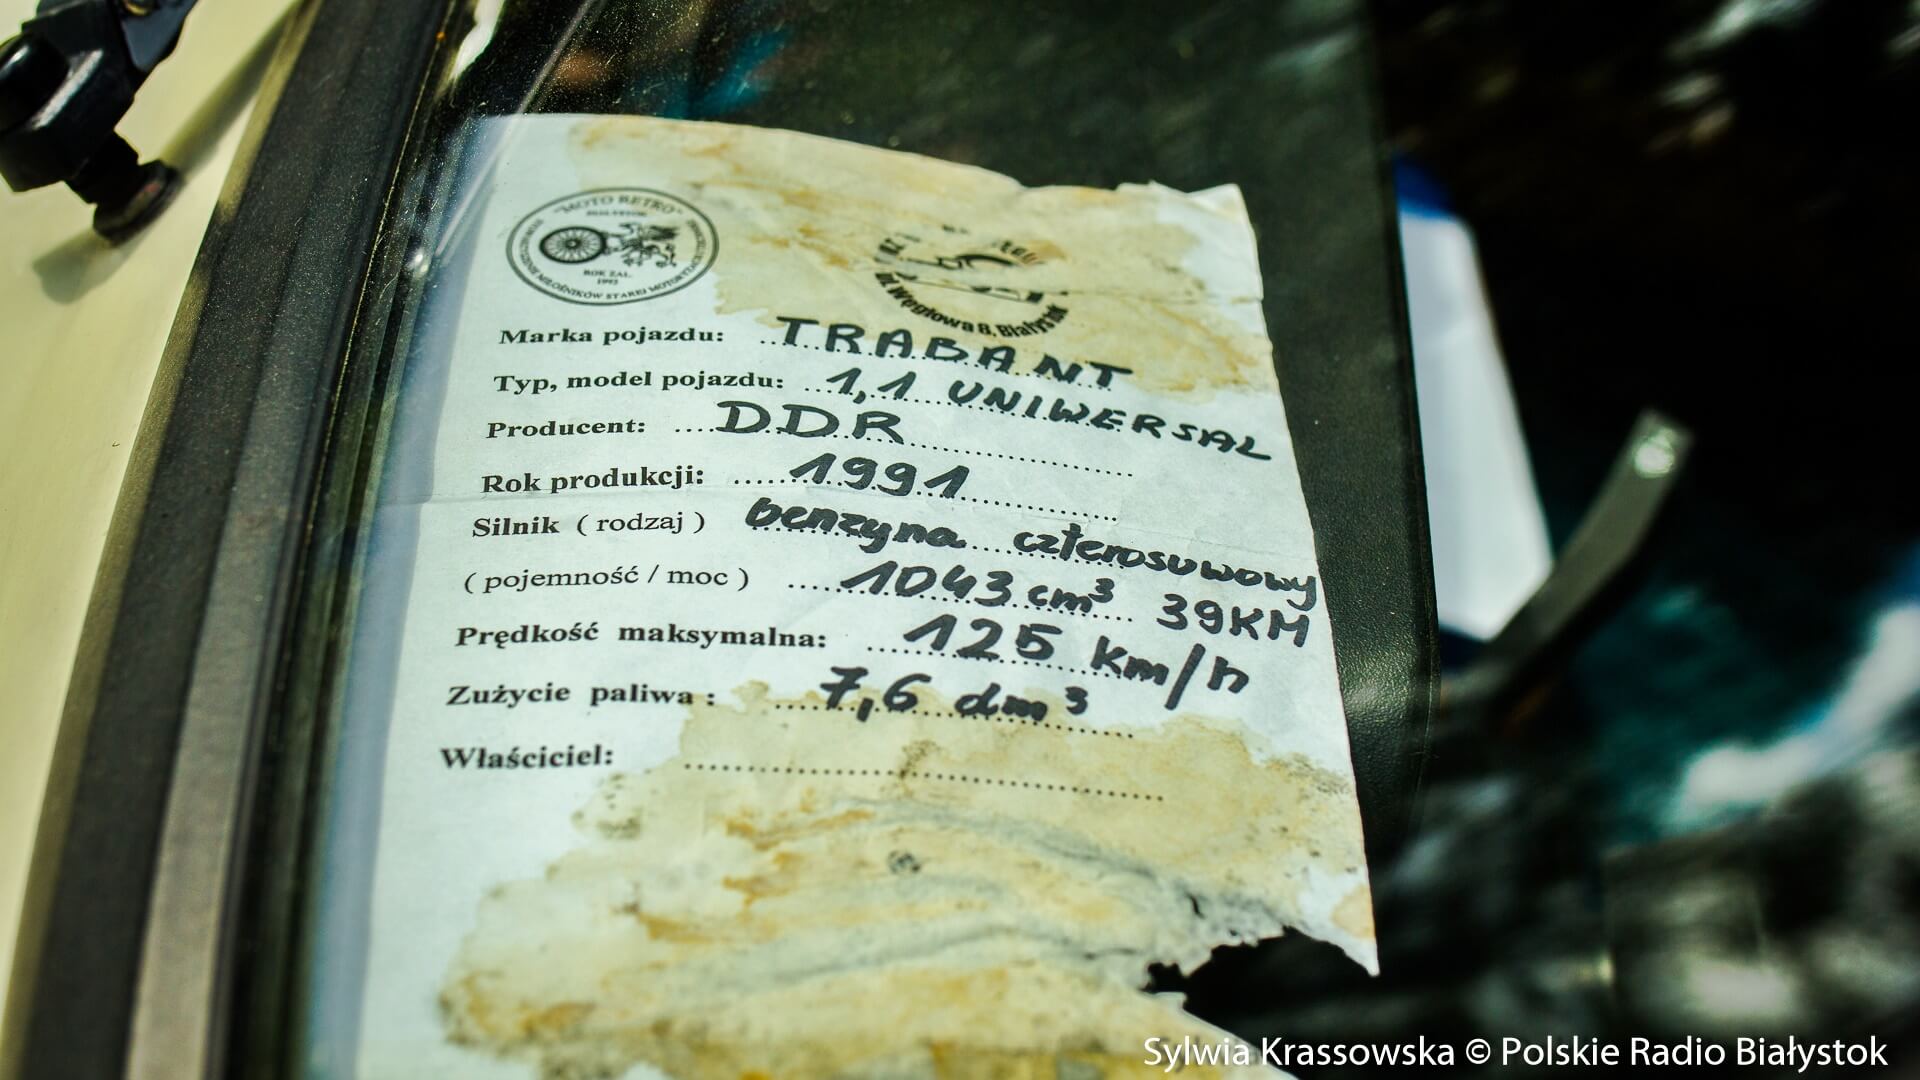 "MOTO RETRO"
BIAŁYSTOK
ROK ZAŁ.
1993
MIŁOŚNIKÓW STAREJ MOTORYZACJI
ul. Węglowa 8, Białystok
Marka pojazdu: TRABANT
Typ, model pojazdu: 1,1 UNIWERSAL
Producent: DDR
Rok produkcji: 1991
Silnik ( rodzaj ) benzyna czterosuwowy
( pojemność / moc ) 1043 cm³ 39KM
Prędkość maksymalna: 125 km/h
Zużycie paliwa : 7,6 dm³
Właściciel:
Sylwia Krassowska © Polskie Radio Białystok